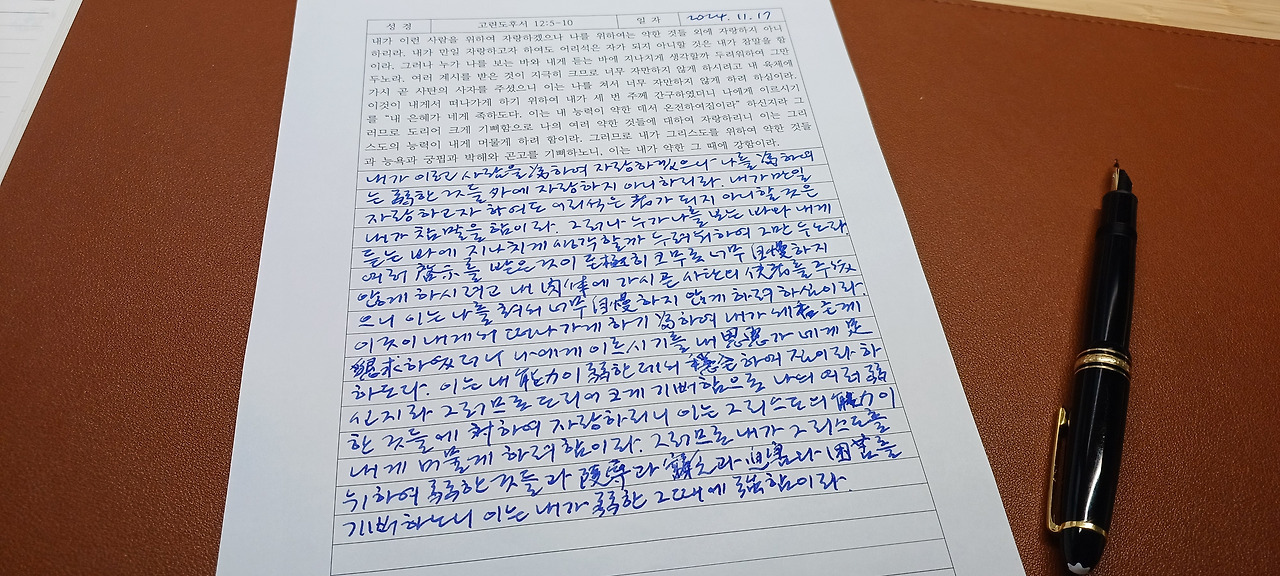 성 경 고린도후서 12:5-10 일 자 2024. 11. 17
내가 이런 사람을 위하여 자랑하겠으나 나를 위하여는 약한 것들 외에 자랑하지 아니
하리라. 내가 만일 자랑하고자 하여도 어리석은 자가 되지 아니할 것은 내가 참말을 함
이라. 그러나 누가 나를 보는 바와 내게 듣는 바에 지나치게 생각할까 두려워하여 그만
두노라. 여러 계시를 받은 것이 지극히 크므로 너무 자만하지 않게 하시려고 내 육체에
가시 곧 사탄의 사자를 주셨으니 이는 나를 쳐서 너무 자만하지 않게 하려 하심이라.
이것이 내게서 떠나가게 하기 위하여 내가 세 번 주께 간구하였더니 나에게 이르시기
를 “내 은혜가 네게 족하도다. 이는 내 능력이 약한 데서 온전하여짐이라” 하신지라 그
러므로 도리어 크게 기뻐함으로 나의 여러 약한 것들에 대하여 자랑하리니 이는 그리
스도의 능력이 내게 머물게 하려 함이라. 그러므로 내가 그리스도를 위하여 약한 것들
과 능욕과 궁핍과 박해와 곤고를 기뻐하노니. 이는 내가 약한 그 때에 강함이라.
내가 이런 사람을 爲하여 자랑하겠으나 나를 爲하여
는 弱한 것들 外에 자랑하지 아니하리라. 내가 만일
자랑하고자 하여도 어리석은 者가 되지 아니할 것은
내가 참말을 함이라. 그러나 누가 나를 보는 바와 내게
듣는 바에 지나치게 생각할까 두려워하여 그만 두노라.
여러 啓示를 받은 것이 至極히 크므로 너무 自慢하지
않게 하시려고 내 肉体에 가시 곧 사탄의 使者를 주셨
으니 이는 나를 쳐서 너무 自慢하지 않게 하려 하심이라.
이것이 내게서 떠나가게 하기 爲하여 내가 세 主께
懇求하였더니 나에게 이르시기를 내 恩惠가 네게 足
하도다. 이는 내 能力이 弱한 데서 穩全하여 짐이라 하
신지라 그러므로 도리어 크게 기뻐함으로 나의 여러 弱
한 것들에 對하여 자랑하리니 이는 그리스도의 能力이
내게 머물게 하려 함이라. 그러므로 내가 그리스도를
위하여 弱한 것들과 陵辱과 窮乏과 迫害와 困苦를
기뻐하노니 이는 내가 弱한 그때에 强함이라.